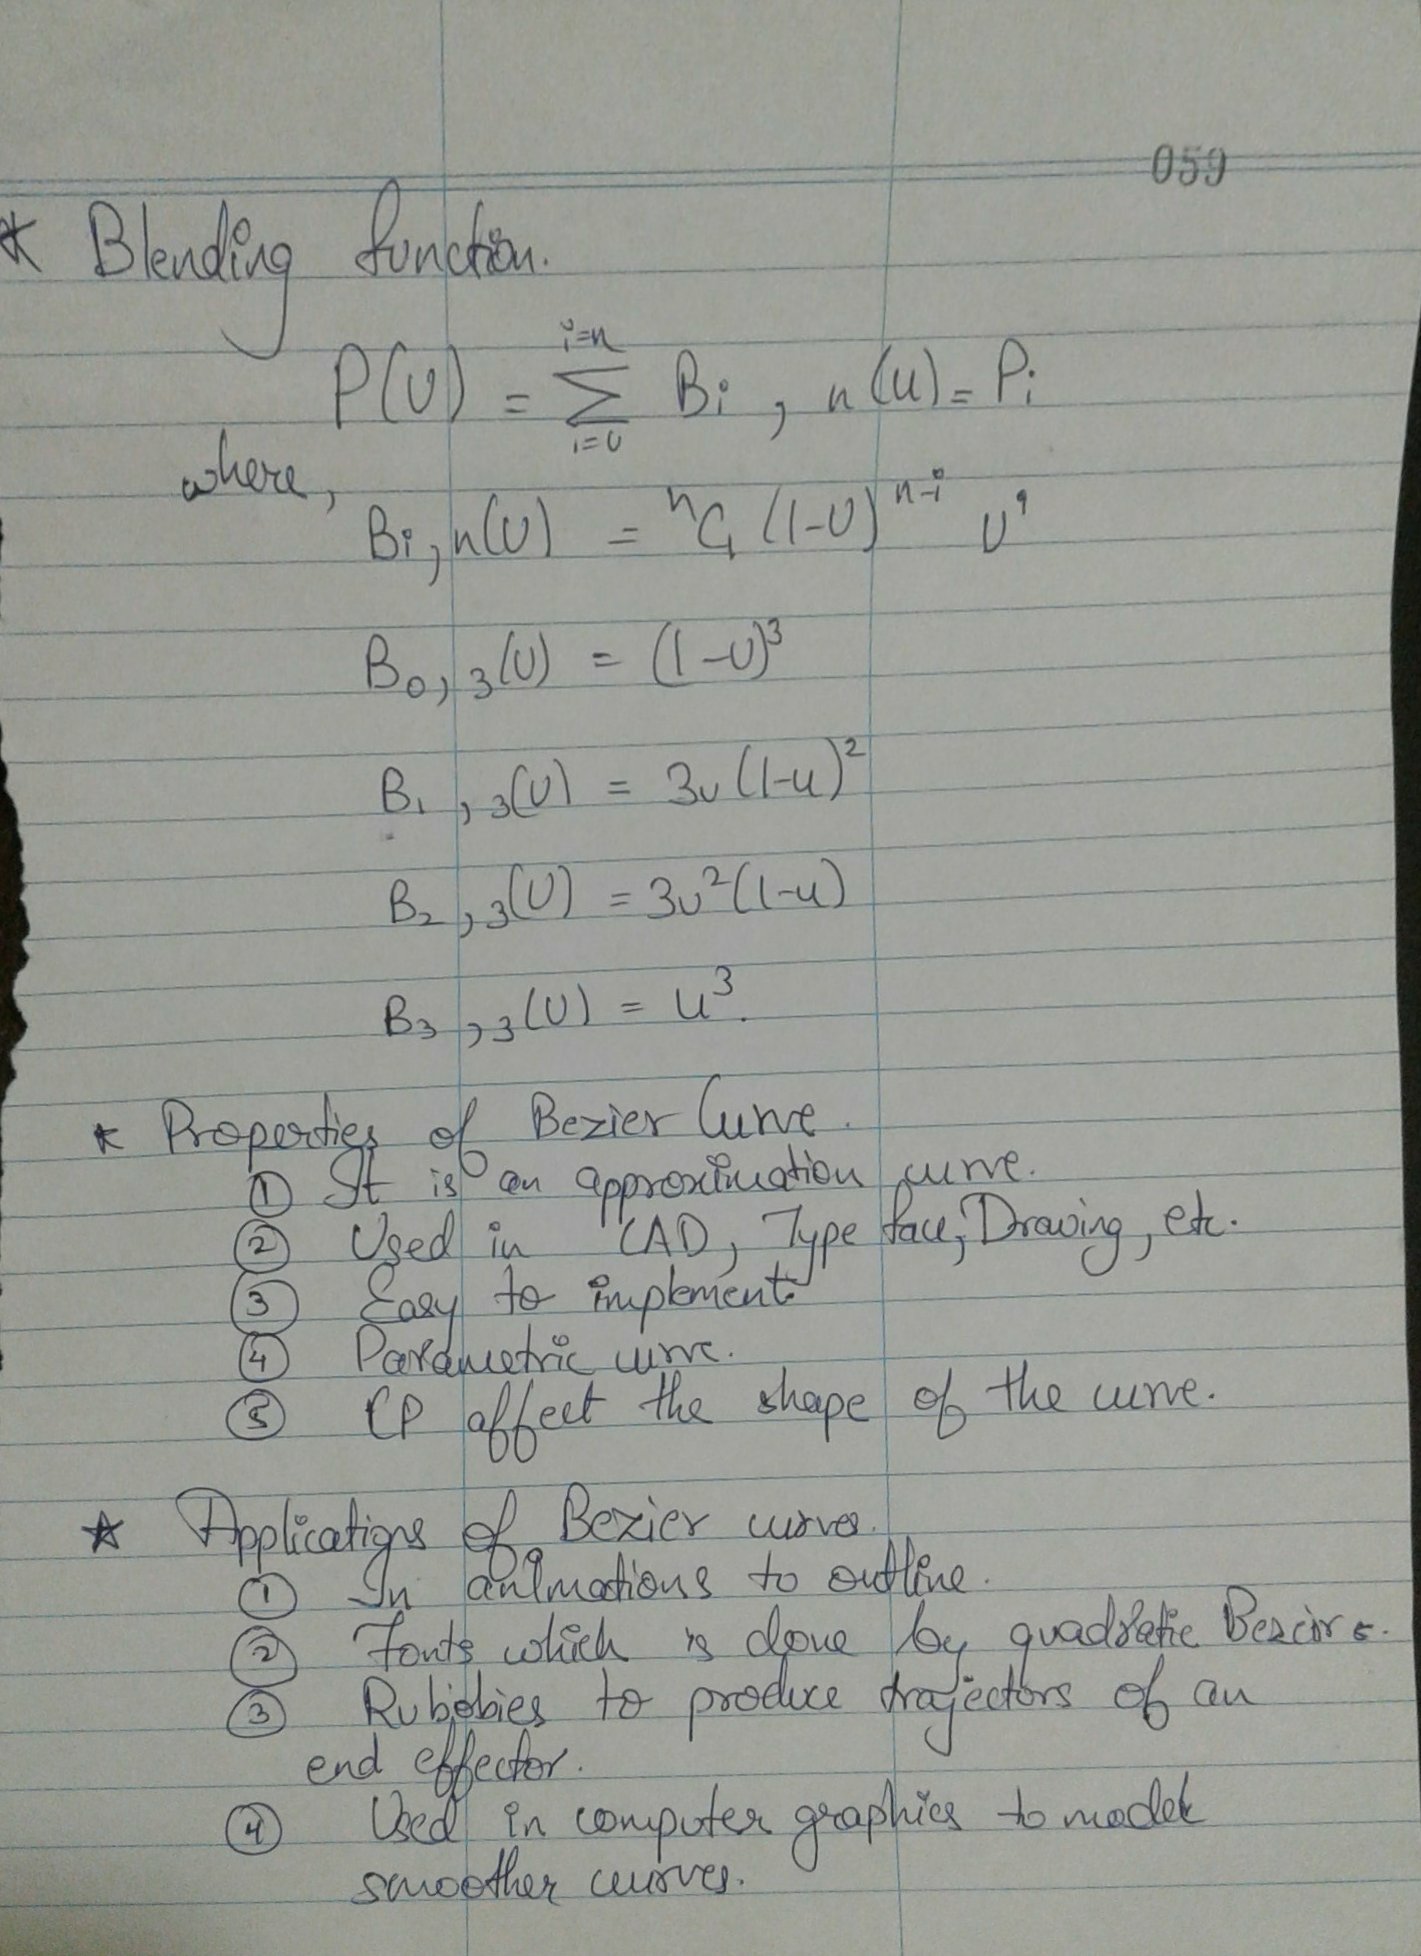 059
* Blending function.
P(U) = Σ i=n i=0 Bi, n(u) = Pi
where,
Bi,n(U) = ⁿCi (1-U)ⁿ⁻ⁱ Uⁱ
B0,3(U) = (1-U)³
B1,3(U) = 3u(1-u)²
B2,3(U) = 3u²(1-u)
B3,3(U) = u³.
* Properties of Bezier Curve.
① It is an approximation curve.
② Used in CAD, Type face, Drawing, etc.
③ Easy to implement.
④ Parametric curve.
⑤ CP affect the shape of the curve.
* Applications of Bezier curves.
① In animations to outline.
② Fonts which is done by quadratic Bezeirs.
③ to produce trajectors of an
end effector.
④ Used in computer graphics to model
smoother curves.